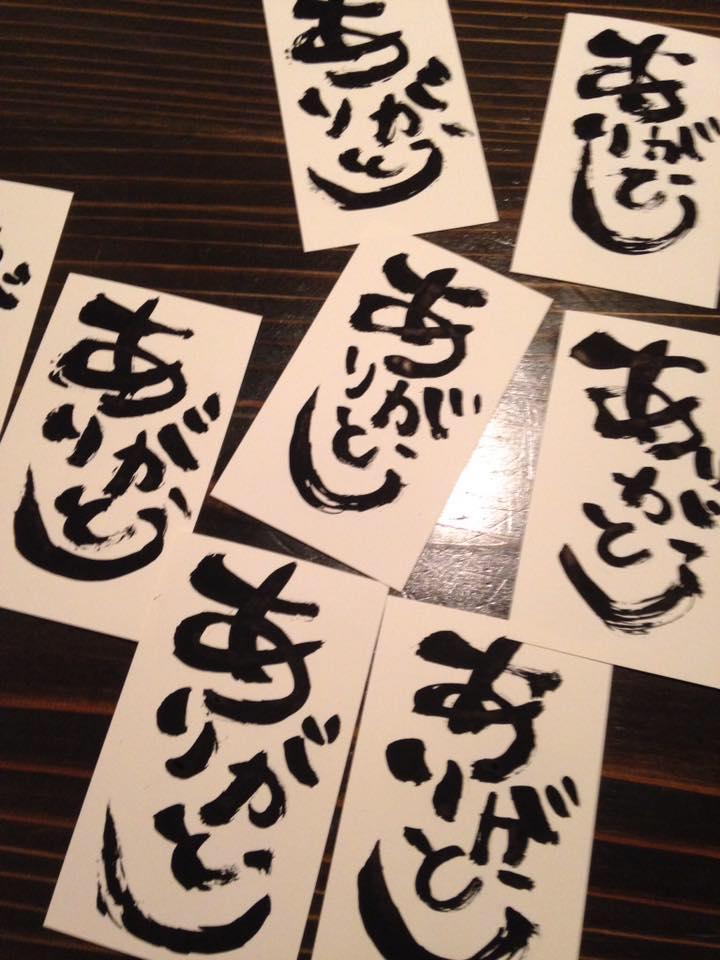 ありがとう
ありがとう
ありがとう
ありがとう
ありがとう
ありがとう
ありがとう